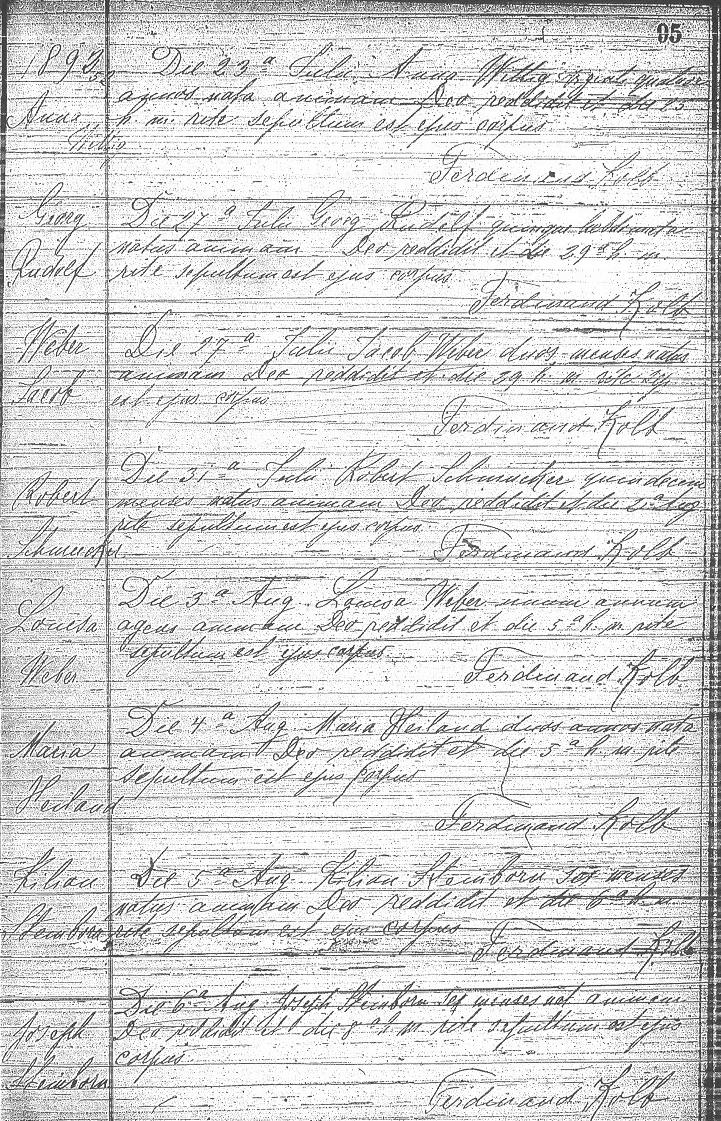 95
1892
Anna
Wittig
Die 23ª Julii Anna Wittig viginti quatuor
annos nata animam Deo reddidit et die 25
h. m. rite sepultum est ejus corpus.
Ferdinand Kolb
Georg
Rudolf
Die 27ª Julii Georg Rudolf quinque
natus animam Deo reddidit et die 29 h. m.
rite sepultum est ejus corpus
Ferdinand Kolb
Weber
Jacob
Die 27ª Julii Jacob Weber duos menses natus
animam Deo reddidit et die 29 h. m. rite sep
est ejus corpus
Ferdinand Kolb
Robert
Schmucker
Die 31ª Julii Robert Schmucker quindecem
menses natus animam Deo reddidit et die 2ª Aug
rite sepultum est ejus corpus.
Ferdinand Kolb
Louisa
Weber
Die 3ª Aug. Louisa Weber unum annum
agens animam Deo reddidit et die 5ª h. m. rite
sepultum est ejus corpus.
Ferdinand Kolb
Maria
Heiland
Die 4ª Aug. Maria Heiland duos annos nata
animam Deo reddidit et die 5ª h. m. rite
sepultum est ejus corpus
Ferdinand Kolb
Kilian
Steinborn
Die 5ª Aug. Kilian Steinborn sex menses
natus animam Deo reddidit et die 6ª h. m.
rite sepultum est ejus corpus
Ferdinand Kolb
Joseph
Steinborn
Die 6ª Aug Joseph Steinborn sex menses nat animam
Deo reddidit et die 8ª h. m. rite sepultum est ejus
corpus.
Ferdinand Kolb